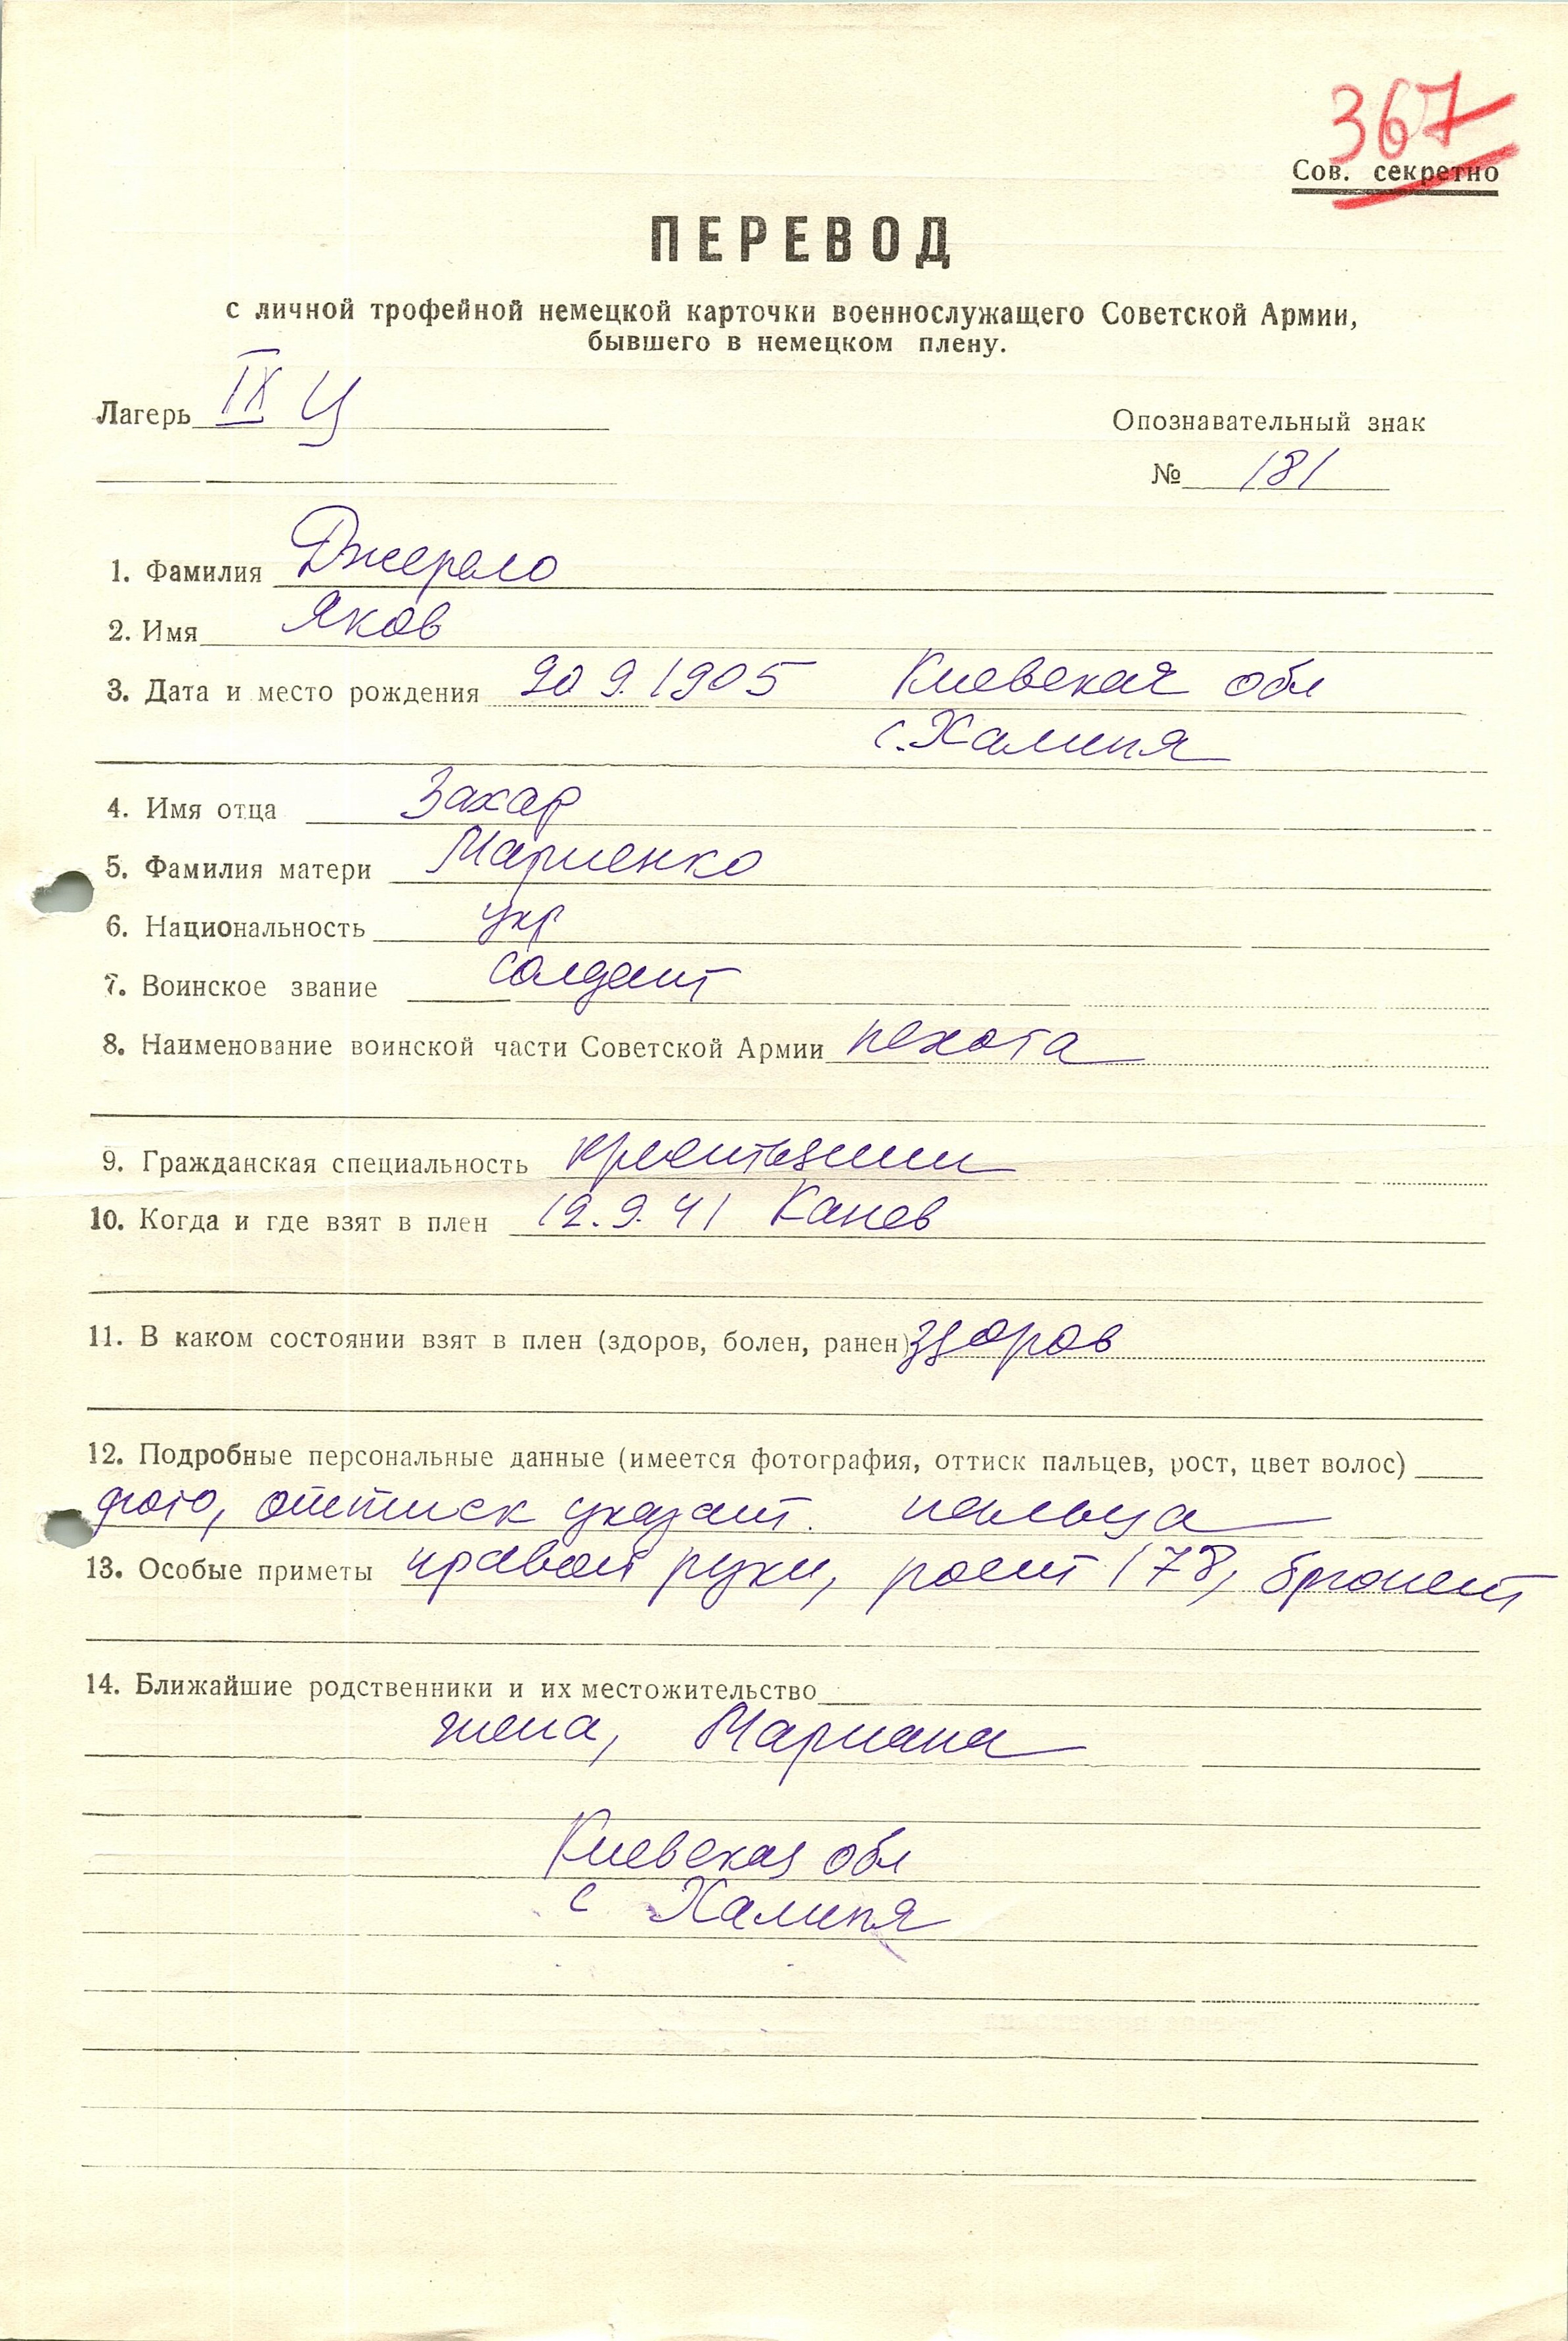 367
Сов. секретно
ПЕРЕВОД
с личной трофейной немецкой карточки военнослужащего Советской Армии,
бывшего в немецком плену.
Лагерь IX Ц
Опознавательный знак
№ 181
1. Фамилия Джерело
2. Имя Яков
3. Дата и место рождения 20 9. 1905 Киевская обл
с. Халипя
4. Имя отца Захар
5. Фамилия матери Мариенко
6. Национальность укр
7. Воинское звание солдат
8. Наименование воинской части Советской Армии пехота
9. Гражданская специальность крестьянин
10. Когда и где взят в плен 12. 9. 41 Канев
11. В каком состоянии взят в плен (здоров, болен, ранен) здоров
12. Подробные персональные данные (имеется фотография, оттиск пальцев, рост, цвет волос)
фото, оттиск указат. пальца
13. Особые приметы правой руки, рост 178, брюнет
14. Ближайшие родственники и их местожительство
жена, Мариана
Киевская обл
с Халипя